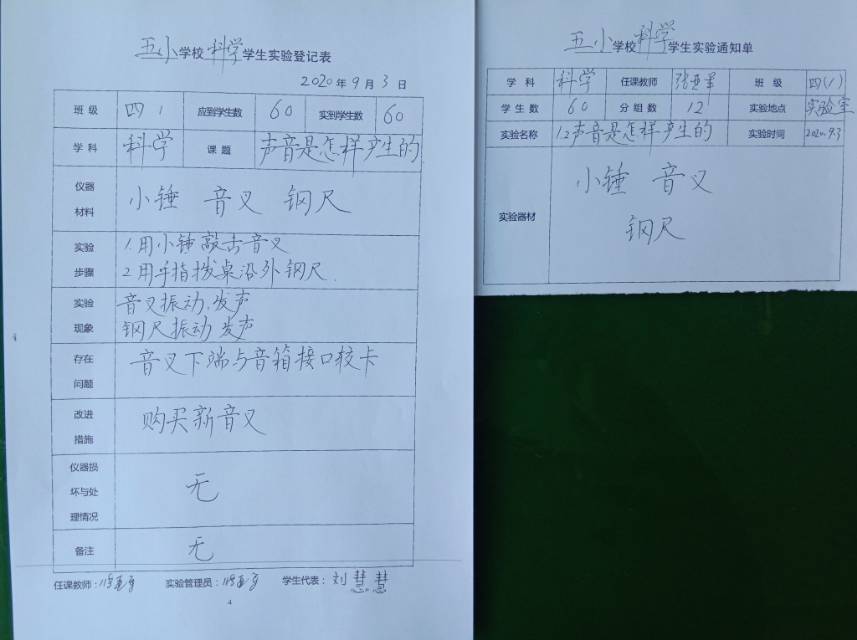 五小学校科学学生实验登记表
2020年9月3日
班级 四1 应到学生数 60 实到学生数 60
学科 科学 课题 声音是怎样产生的
仪器材料 小锤 音叉 钢尺
实验步骤 1.用小锤敲击音叉
2.用手指拨桌沿外钢尺.
实验现象 音叉振动,发声
钢尺振动 发声
存在问题 音叉下端与音箱接口较卡
改进措施 购买新音叉
仪器损坏与处理情况 无
备注 无
任课教师: 实验管理员: 学生代表:刘慧慧
4
五小学校科学学生实验通知单
学科 科学 任课教师 班级 四(1)
学生数 60 分组数 12 实验地点 实验室
实验名称 1.2声音是怎样产生的 实验时间 2020.9.3
实验器材 小锤 音叉
钢尺